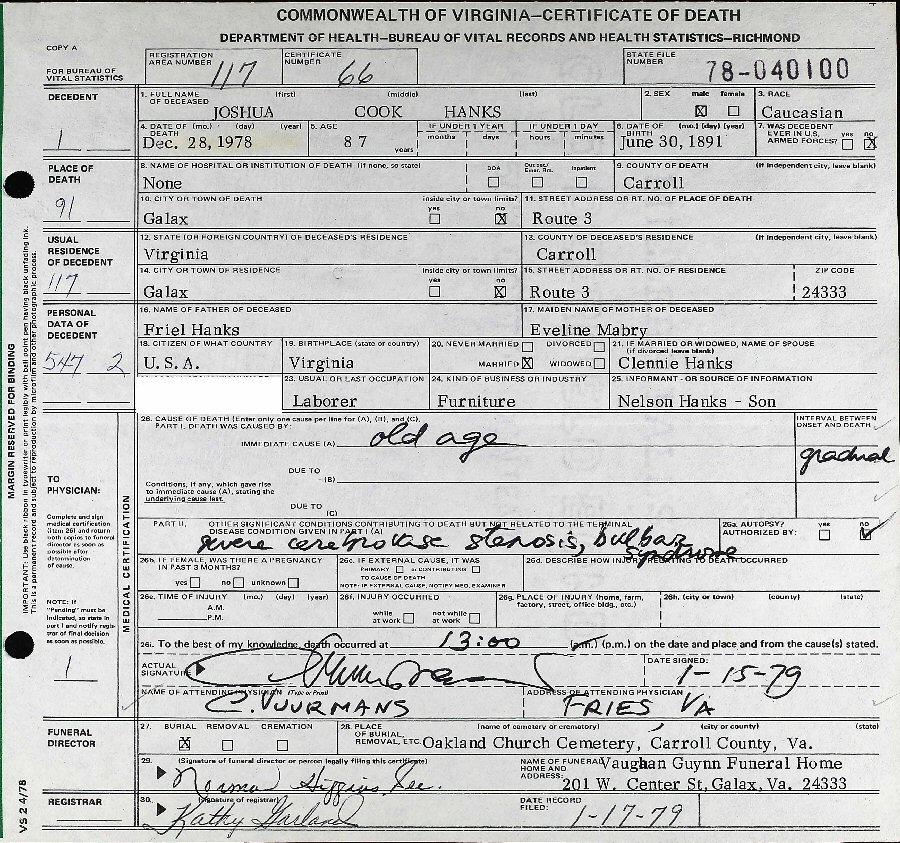 COMMONWEALTH OF VIRGINIA—CERTIFICATE OF DEATH
DEPARTMENT OF HEALTH—BUREAU OF VITAL RECORDS AND HEALTH STATISTICS—RICHMOND
COPY A
FOR BUREAU OF VITAL STATISTICS
REGISTRATION AREA NUMBER 117
CERTIFICATE NUMBER 66
STATE FILE NUMBER 78-040100
DECEDENT
1
1. FULL NAME OF DECEASED (first) (middle) (last)
JOSHUA COOK HANKS
2. SEX male ☒ female ☐
3. RACE
Caucasian
4. DATE OF DEATH (mo.) (day) (year)
Dec. 28, 1978
5. AGE
87 years
IF UNDER 1 YEAR months days
IF UNDER 1 DAY hours minutes
6. DATE OF BIRTH (mo.) (day) (year)
June 30, 1891
7. WAS DECEDENT EVER IN U.S. ARMED FORCES? yes ☐ no ☒
PLACE OF DEATH
91
8. NAME OF HOSPITAL OR INSTITUTION OF DEATH (if none, so state)
None
DOA ☐ Out pat/ Emer. Rm. ☐ Inpatient ☐
9. COUNTY OF DEATH (if independent city, leave blank)
Carroll
10. CITY OR TOWN OF DEATH
Galax
inside city or town limits? yes ☐ no ☒
11. STREET ADDRESS OR RT. NO. OF PLACE OF DEATH
Route 3
USUAL RESIDENCE OF DECEDENT
117
12. STATE (OR FOREIGN COUNTRY) OF DECEASED'S RESIDENCE
Virginia
13. COUNTY OF DECEASED'S RESIDENCE (if independent city, leave blank)
Carroll
14. CITY OR TOWN OF RESIDENCE
Galax
inside city or town limits? yes ☐ no ☒
15. STREET ADDRESS OR RT. NO. OF RESIDENCE
Route 3
ZIP CODE
24333
PERSONAL DATA OF DECEDENT
547 2
16. NAME OF FATHER OF DECEASED
Friel Hanks
17. MAIDEN NAME OF MOTHER OF DECEASED
Eveline Mabry
18. CITIZEN OF WHAT COUNTRY
U.S.A.
19. BIRTHPLACE (state or country)
Virginia
20. NEVER MARRIED ☐ DIVORCED ☐
MARRIED ☒ WIDOWED ☐
21. IF MARRIED OR WIDOWED, NAME OF SPOUSE (if divorced leave blank)
Clennie Hanks
23. USUAL OR LAST OCCUPATION
Laborer
24. KIND OF BUSINESS OR INDUSTRY
Furniture
25. INFORMANT - OR SOURCE OF INFORMATION
Nelson Hanks - Son
MARGIN RESERVED FOR BINDING
IMPORTANT: Use black ribbon in typewriter or print legibly with ball point pen having black unfading ink.
This is a permanent record and subject to reproduction by microfilm and other photographic process.
VS 2 4/78
TO PHYSICIAN:
Complete and sign medical certification (Item 26) and return both copies to funeral director as soon as possible after determination of cause.
NOTE: If "Pending" must be indicated, so state in part I and notify registrar of final decision as soon as possible.
1
MEDICAL CERTIFICATION
26. CAUSE OF DEATH (Enter only one cause per line for (A), (B), and (C).
PART I. DEATH WAS CAUSED BY:
IMMEDIATE CAUSE (A) old age
INTERVAL BETWEEN ONSET AND DEATH
gradual
DUE TO (B)
Conditions, if any, which gave rise to immediate cause (A), stating the underlying cause last.
DUE TO (C)
PART II. OTHER SIGNIFICANT CONDITIONS CONTRIBUTING TO DEATH BUT NOT RELATED TO THE TERMINAL DISEASE CONDITION GIVEN IN PART I (A)
severe cerebrovasc stenosis, bulbar syndrome
26a. AUTOPSY? AUTHORIZED BY: yes ☐ no ☑
26b. IF FEMALE, WAS THERE A PREGNANCY IN PAST 3 MONTHS?
yes ☐ no ☐ unknown ☐
26c. IF EXTERNAL CAUSE, IT WAS
PRIMARY ☐ or CONTRIBUTING ☐
TO CAUSE OF DEATH
NOTE: IF EXTERNAL CAUSE, NOTIFY MED. EXAMINER
26d. DESCRIBE HOW INJURY RELATING TO DEATH OCCURRED
26e. TIME OF INJURY (mo.) (day) (year)
A.M.
P.M.
26f. INJURY OCCURRED
while at work ☐ not while at work ☐
26g. PLACE OF INJURY (home, farm, factory, street, office bldg., etc.)
26h. (city or town) (county) (state)
26i. To the best of my knowledge, death occurred at 13:00 (a.m.) (p.m.) on the date and place and from the cause(s) stated.
ACTUAL SIGNATURE
DATE SIGNED:
1-15-79
NAME OF ATTENDING PHYSICIAN (Type or Print)
C. VUURMANS
ADDRESS OF ATTENDING PHYSICIAN
FRIES VA
FUNERAL DIRECTOR
27. BURIAL ☒ REMOVAL ☐ CREMATION ☐
28. PLACE OF BURIAL, REMOVAL, ETC. (name of cemetery or crematory) (city or county) (state)
Oakland Church Cemetery, Carroll County, Va.
29. (Signature of funeral director or person legally filing this certificate)
Norma Higgins, Sec.
NAME OF FUNERAL HOME AND ADDRESS:
Vaughan Guynn Funeral Home
201 W. Center St, Galax, Va. 24333
REGISTRAR
30. (Signature of registrar)
Kathy Garland
DATE RECORD FILED:
1-17-79